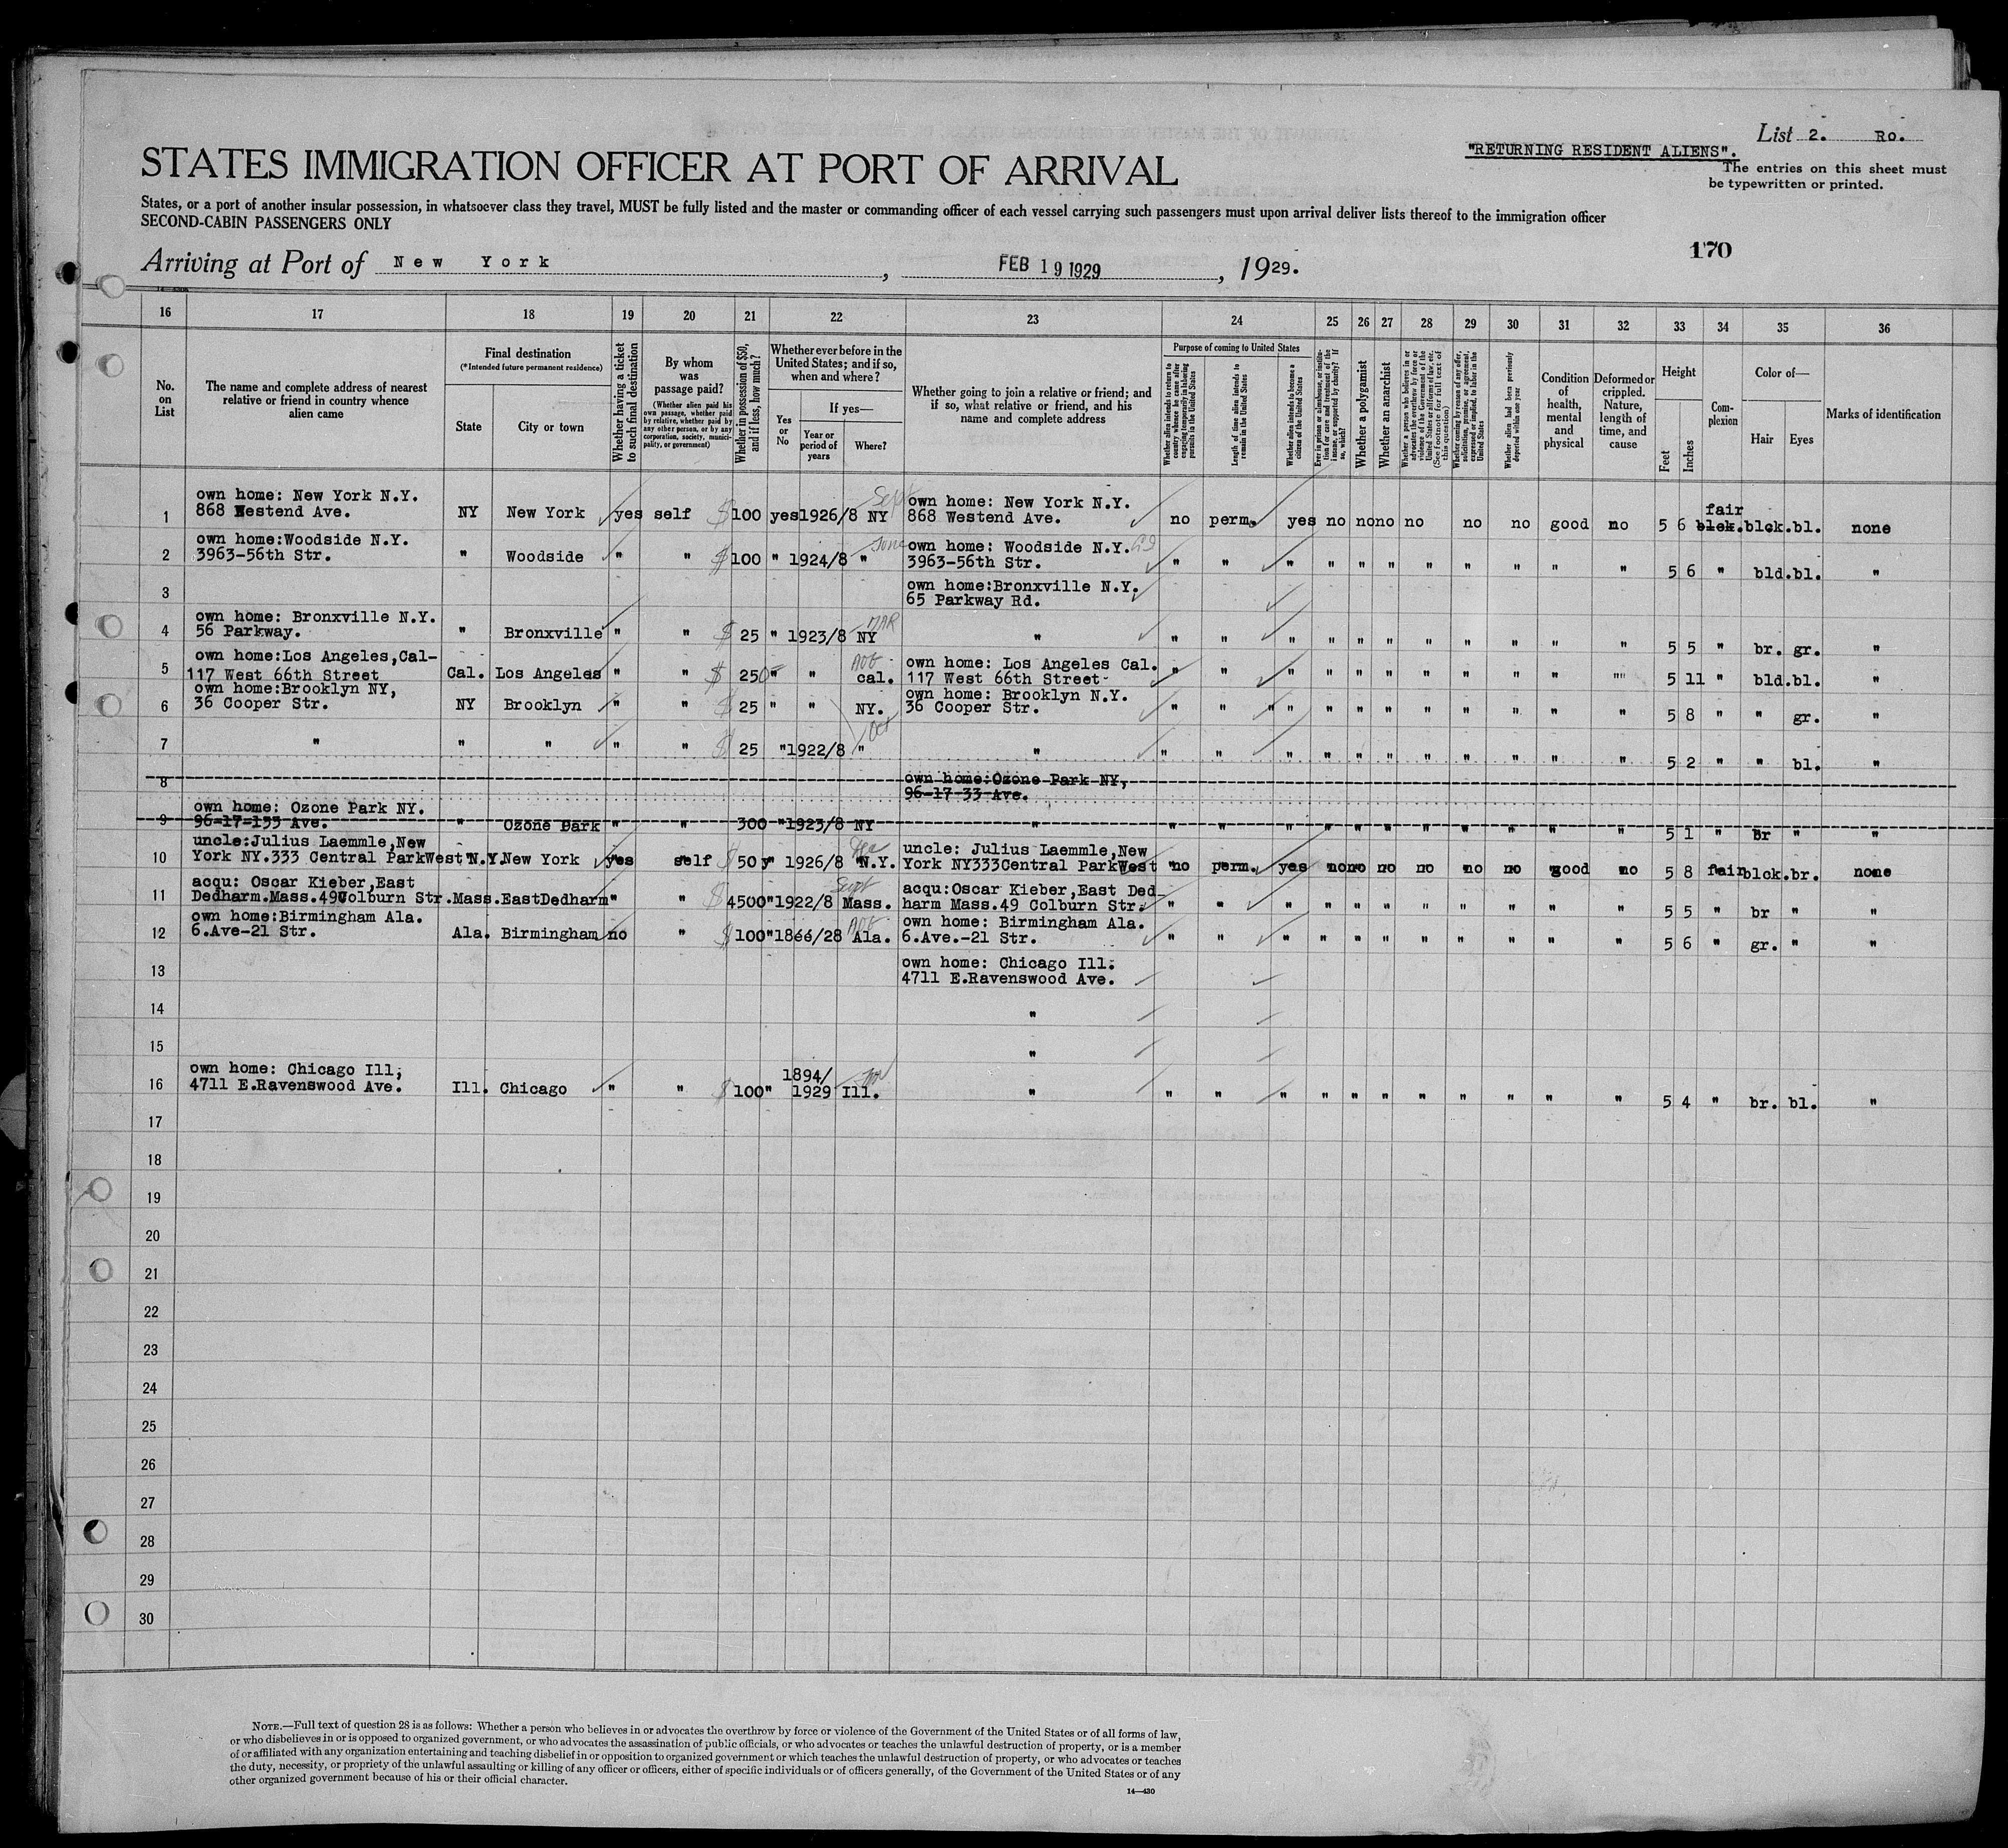 List 2. Ro.
"RETURNING RESIDENT ALIENS".
STATES IMMIGRATION OFFICER AT PORT OF ARRIVAL
The entries on this sheet must
be typewritten or printed.
States, or a port of another insular possession, in whatsoever class they travel, MUST be fully listed and the master or commanding officer of each vessel carrying such passengers must upon arrival deliver lists thereof to the immigration officer
SECOND-CABIN PASSENGERS ONLY
170
Arriving at Port of New York, FEB 19 1929, 1929.
16 17 18 19 20 21 22 23 24 25 26 27 28 29 30 31 32 33 34 35 36
No. on List
The name and complete address of nearest relative or friend in country whence alien came
Final destination
(*Intended future permanent residence)
State
City or town
Whether having a ticket to such final destination
By whom was passage paid?
(Whether alien paid his own passage, whether paid by relative, whether paid by any other person, or by any corporation, society, municipality, or government)
Whether in possession of $50, and if less, how much?
Whether ever before in the United States; and if so, when and where?
Yes or No
If yes—
Year or period of years
Where?
Whether going to join a relative or friend; and if so, what relative or friend, and his name and complete address
Purpose of coming to United States
Whether alien intends to return to country whence he came after engaging temporarily in laboring pursuits in the United States
Length of time alien intends to remain in the United States
Whether alien intends to become a citizen of the United States
Ever in prison or almshouse, or institution for care and treatment of the insane, or supported by charity? If so, which?
Whether a polygamist
Whether an anarchist
Whether a person who believes in or advocates the overthrow by force or violence of the Government of the United States or all forms of law, etc. (See footnote for full text of this question)
Whether coming by reason of any offer, solicitation, promise, or agreement, expressed or implied, to labor in the United States
Whether alien had been previously deported within one year
Condition of health, mental and physical
Deformed or crippled. Nature, length of time, and cause
Height
Feet
Inches
Complexion
Color of—
Hair
Eyes
Marks of identification
own home: New York N.Y. Sept own home: New York N.Y. fair
1 868 Westend Ave. NY New York yes self $100 yes 1926/8 NY 868 Westend Ave. no perm. yes no no no no no no good no 5 6 blck. blck. bl. none
own home:Woodside N.Y. June own home: Woodside N.Y.
2 3963-56th Str. " Woodside " " $100 " 1924/8 " 3963-56th Str. " " " " " " " " " " " 5 6 " bld. bl. "
own home:Bronxville N.Y.
3 65 Parkway Rd.
own home: Bronxville N.Y. MAR
4 56 Parkway. " Bronxville " " $ 25 " 1923/8 NY " " " " " " " " " " " " 5 5 " br. gr. "
5 own home:Los Angeles,Cal- own home: Los Angeles Cal.
117 West 66th Street Cal. Los Angeles " " $ 250 " " cal. 117 West 66th Street " " " " " " " " " " "" 5 11 " bld. bl. "
own home:Brooklyn NY, own home: Brooklyn N.Y.
6 36 Cooper Str. NY Brooklyn " " $ 25 " " NY. 36 Cooper Str. " " " " " " " " " " " " 5 8 " " gr. "
Oct
7 " " " " " $ 25 " 1922/8 " " " " " " " " " " " " " 5 2 " " bl. "
own home:Ozone Park NY,
8 96-17-33 Ave.
own home: Ozone Park NY.
9 96-17-133 Ave. " Ozone Park " " 300 " 1923/8 NY " " " " " " " " " " " " 5 1 " Br " "
uncle:Julius Laemmle,New uncle: Julius Laemmle,New
10 York NY.333 Central ParkWest N.Y. New York yes self $ 50 y 1926/8 N.Y. York NY333Central ParkWest no perm. yes no no no no no no good no 5 8 fair blck. br. none
acqu: Oscar Kieber,East Sept acqu:Oscar Kieber,East Ded-
11 Dedharm.Mass.49 Colburn Str. Mass. EastDedharm " " $ 4500 " 1922/8 Mass. harm Mass.49 Colburn Str. " " " " " " " " " " " 5 5 " br " "
own home:Birmingham Ala. own home: Birmingham Ala.
12 6.Ave-21 Str. Ala. Birmingham no " $ 100 " 1866/28 Ala. 6.Ave.-21 Str. " " " " " " " " " " " 5 6 " gr. " "
own home: Chicago Ill.
13 4711 E.Ravenswood Ave.
14 "
15 "
own home: Chicago Ill, 1894/
16 4711 E.Ravenswood Ave. Ill. Chicago " " $ 100 " 1929 Ill. " " " " " " " " " " " " 5 4 " br. bl. "
17
18
19
20
21
22
23
24
25
26
27
28
29
30
NOTE.—Full text of question 28 is as follows: Whether a person who believes in or advocates the overthrow by force or violence of the Government of the United States or of all forms of law,
or who disbelieves in or is opposed to organized government, or who advocates the assassination of public officials, or who advocates or teaches the unlawful destruction of property, or is a member
of or affiliated with any organization entertaining and teaching disbelief in or opposition to organized government or which teaches the unlawful destruction of property, or who advocates or teaches
the duty, necessity, or propriety of the unlawful assaulting or killing of any officer or officers, either of specific individuals or of officers generally, of the Government of the United States or of any
other organized government because of his or their official character.
14—430